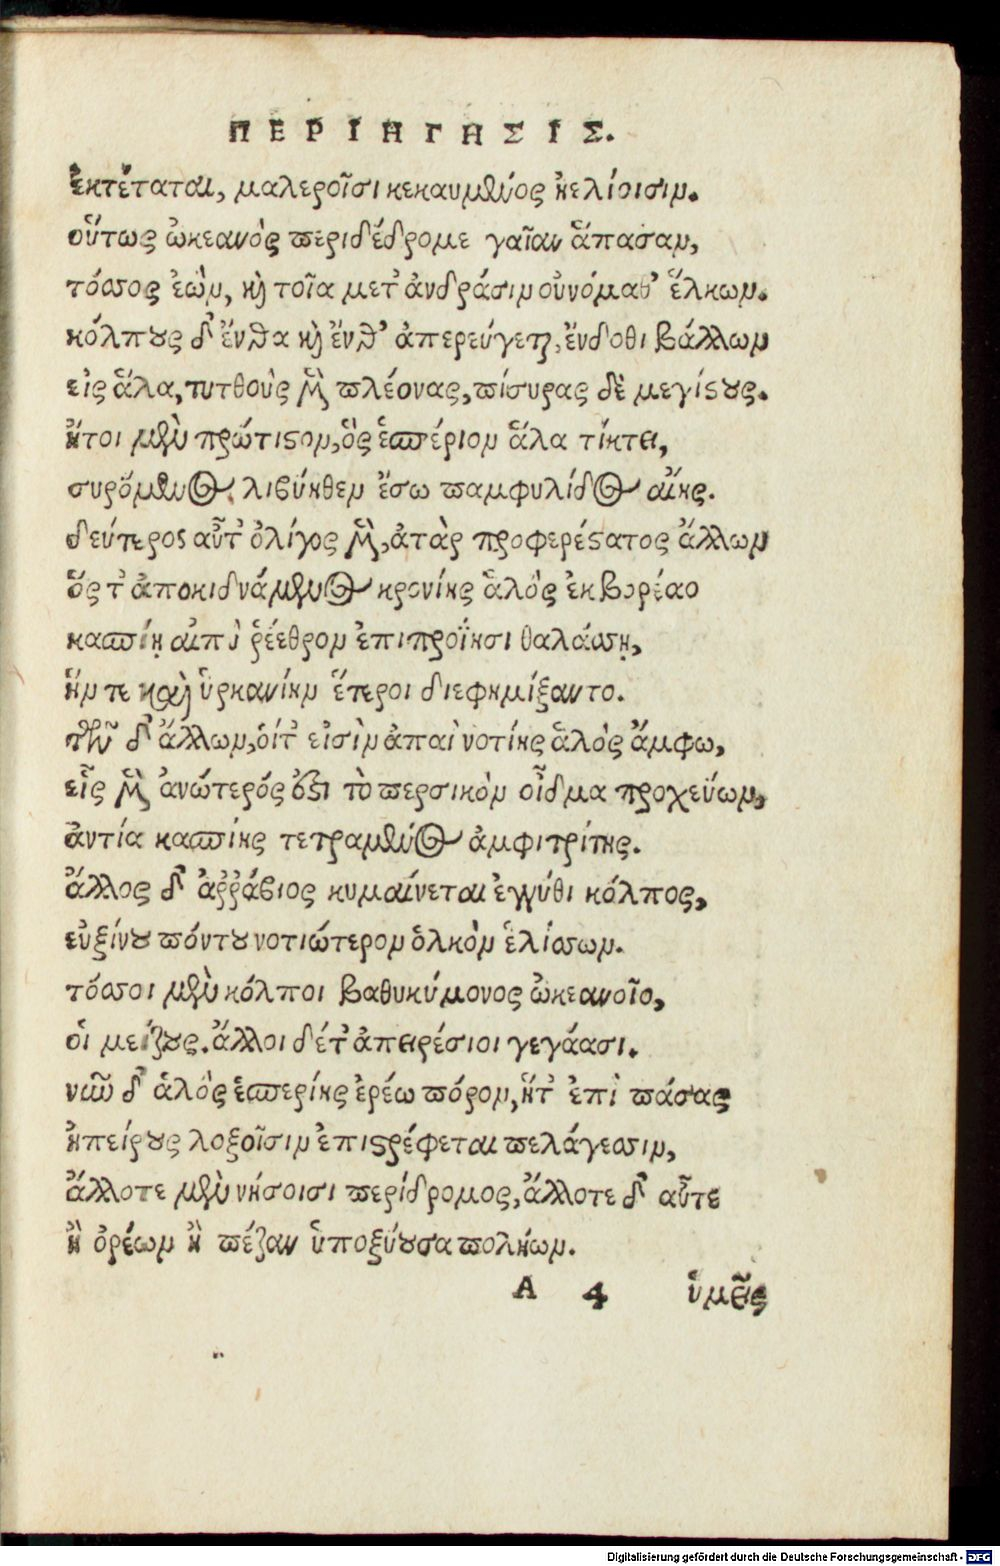 ΠΕΡΙΗΓΗΣΙΣ.
ἐκτέταται, μαλεροῖσι κεκαυμένος ἠελίοισιν.
οὕτως ὠκεανὸς περιδέδρομε γαῖαν ἅπασαν,
τόσσος ἐὼν, καὶ τοῖα μετ' ἀνδράσιν οὐνόμαθ' ἕλκων.
κόλπους δ' ἔνθα καὶ ἔνθ' ἀπερεύγεται, ἔνδοθι βάλλων
εἰς ἅλα, τυτθοὺς μὲν πλέονας, πίσυρας δὲ μεγίστους.
ἤτοι μὲν πρώτιστον, ὃς ἑσπέριον ἅλα τίκτει,
συρόμενος λιβύηθεν ἔσω παμφυλίδος αἴης.
δεύτερος αὖτ' ὀλίγος μὲν, ἀτὰρ προφερέστατος ἄλλων
ὅς τ' ἀποκιδνάμενος κρονίης ἁλὸς ἐκ βορέαο
κασπίῃ αἰπὺ ῥέεθρον ἐπιπροΐησι θαλάσσῃ,
ἥν τε καὶ ὑρκανίην ἕτεροι διεφημίξαντο.
τῶν δ' ἄλλων, οἵτ' εἰσὶν ἀπαὶ νοτίης ἁλὸς ἄμφω,
εἷς μὲν ἀνώτερός ἐστι τὸ περσικὸν οἶδμα προχεύων,
ἀντία κασπίης τετραμμένος ἀμφιτρίτης.
ἄλλος δ' ἀῤῥάβιος κυμαίνεται ἐγγύθι κόλπος,
εὐξίνου πόντου νοτιώτερον ὁλκὸν ἑλίσσων.
τόσσοι μὲν κόλποι βαθυκύμονος ὠκεανοῖο,
οἱ μείζους. ἄλλοι δέ τ' ἀπειρέσιοι γεγάασι.
νῦν δ' ἁλὸς ἑσπερίης ἐρέω πόρον, ἥτ' ἐπὶ πάσας
ἠπείρους λοξοῖσιν ἐπιστρέφεται πελάγεσσιν,
ἄλλοτε μὲν νήσοισι περίδρομος, ἄλλοτε δ' αὖτε
ἢ ὀρέων ἢ πέζαν ὑποξύουσα πολήων.
A 4 ὑμεῖς
Digitalisierung gefördert durch die Deutsche Forschungsgemeinschaft - DFG